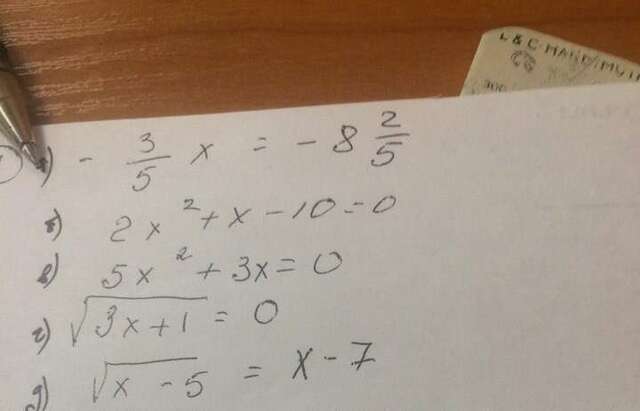 L & C-HAND/MUTA
300
1) а) - 3/5 x = - 8 2/5
б) 2x² + x - 10 = 0
в) 5x² + 3x = 0
г) √(3x + 1) = 0
д) √(x - 5) = x - 7